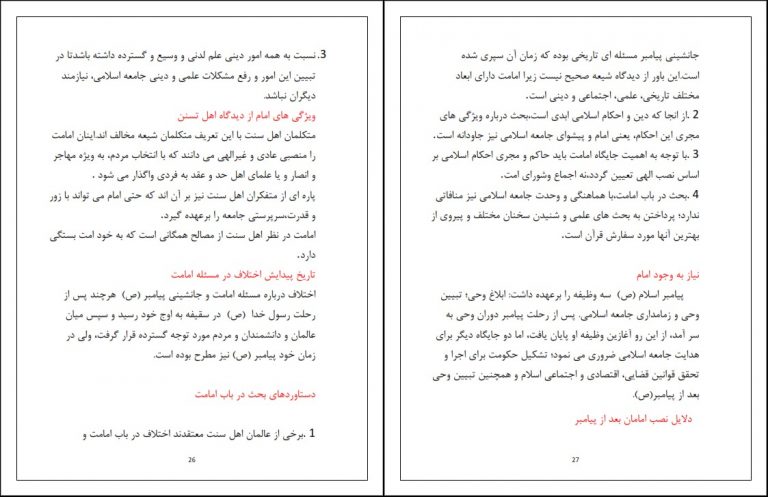 3.نسبت به همه امور دینی علم لدنی و وسیع و گسترده داشته باشدتا در
تبیین این امور و رفع مشکلات علمی و دینی جامعه اسلامی، نیازمند
دیگران نباشد.
ویژگی های امام از دیدگاه اهل تسنن
متکلمان اهل سنت با این تعریف متکلمان شیعه مخالف اند.اینان امامت
را منصبی عادی و غیرالهی می دانند که با انتخاب مردم، به ویژه مهاجر
و انصار و یا علمای اهل حد و عقد به فردی واگذار می شود .
پاره ای از متفکران اهل سنت نیز بر آن اند که حتی امام می تواند با زور
و قدرت،سرپرستی جامعه را برعهده گیرد.
امامت در نظر اهل سنت از مصالح همگانی است که به خود امت بستگی
دارد.
تاریخ پیدایش اختلاف در مسئله امامت
اختلاف درباره مسئله امامت و جانشینی پیامبر (ص) هرچند پس از
رحلت رسول خدا (ص) در سقیفه به اوج خود رسید و سپس میان
عالمان و دانشمندان و مردم مورد توجه گسترده قرار گرفت، ولی در
زمان خود پیامبر (ص) نیز مطرح بوده است.
دستاوردهای بحث در باب امامت
1 .برخی از عالمان اهل سنت معتقدند اختلاف در باب امامت و
26
جانشینی پیامبر مسئله ای تاریخی بوده که زمان آن سپری شده
است.این باور از دیدگاه شیعه صحیح نیست زیرا امامت دارای ابعاد
مختلف تاریخی، علمی، اجتماعی و دینی است.
2 .از آنجا که دین و احکام اسلامی ابدی است،بحث درباره ویژگی های
مجری این احکام، یعنی امام و پیشوای جامعه اسلامی نیز جاودانه است.
3 .با توجه به اهمیت جایگاه امامت باید حاکم و مجری احکام اسلامی بر
اساس نصب الهی تعیین گردد،نه اجماع وشورای امت.
4 .بحث در باب امامت،با هماهنگی و وحدت جامعه اسلامی نیز منافاتی
ندارد؛ پرداختن به بحث های علمی و شنیدن سخنان مختلف و پیروی از
بهترین آنها مورد سفارش قرآن است.
نیاز به وجود امام
پیامبر اسلام (ص) سه وظیفه را برعهده داشت: ابلاغ وحی؛ تبیین
وحی و زمامداری جامعه اسلامی. پس از رحلت پیامبر دوران وحی به
سر آمد، از این رو آغازین وظیفه او پایان یافت، اما دو جایگاه دیگر برای
هدایت جامعه اسلامی ضروری می نمود؛ تشکیل حکومت برای اجرا و
تحقق قوانین قضایی، اقتصادی و اجتماعی اسلام و همچنین تبیین وحی
بعد از پیامبر(ص).
دلایل نصب امامان بعد از پیامبر
27